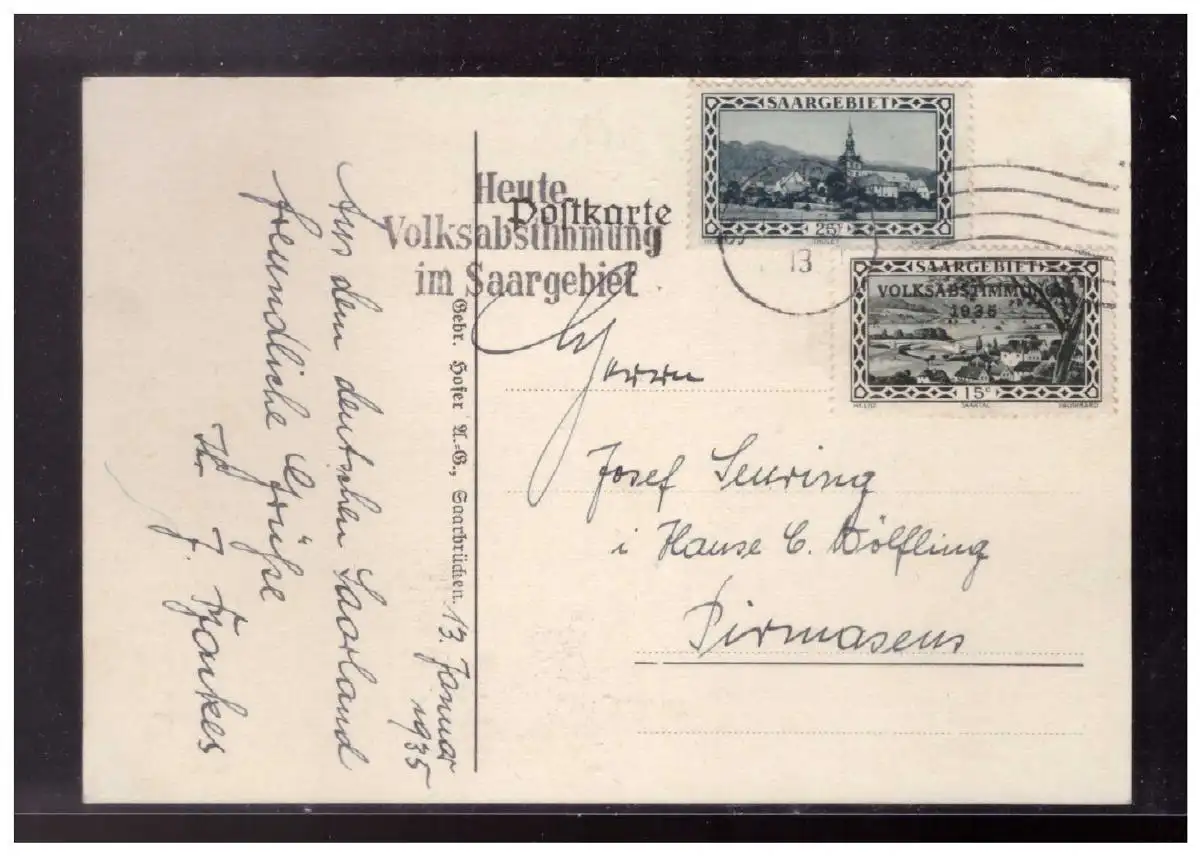 SAARGEBIET
25c
THOLEY
SAARGEBIET
VOLKSABSTIMMUNG
1935
15c
SAARTAL
13
Heute
Volksabstimmung
im Saargebiet
Postkarte
Aus dem deutschen Saarland
freundliche Grüße
Ihr J.
13. Januar
1935
Gebr. Hofer A.=G., Saarbrücken.
Herrn
Josef Seuring
i Hause C. Wölfling
Pirmasens